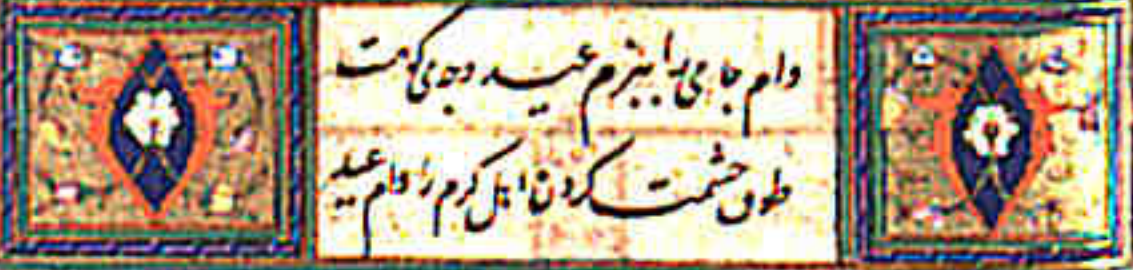 وام جامی را ببزم عید وجهی کو مت
طوق حشمت کردن اهل کرم را وام عید